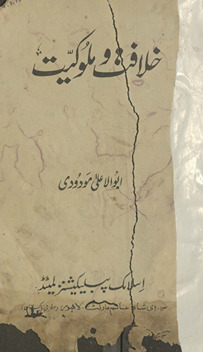 خلافت و ملوکیت
ابوالاعلیٰ مودودی
اسلامک پبلیکیشنز لمیٹڈ
لاہور